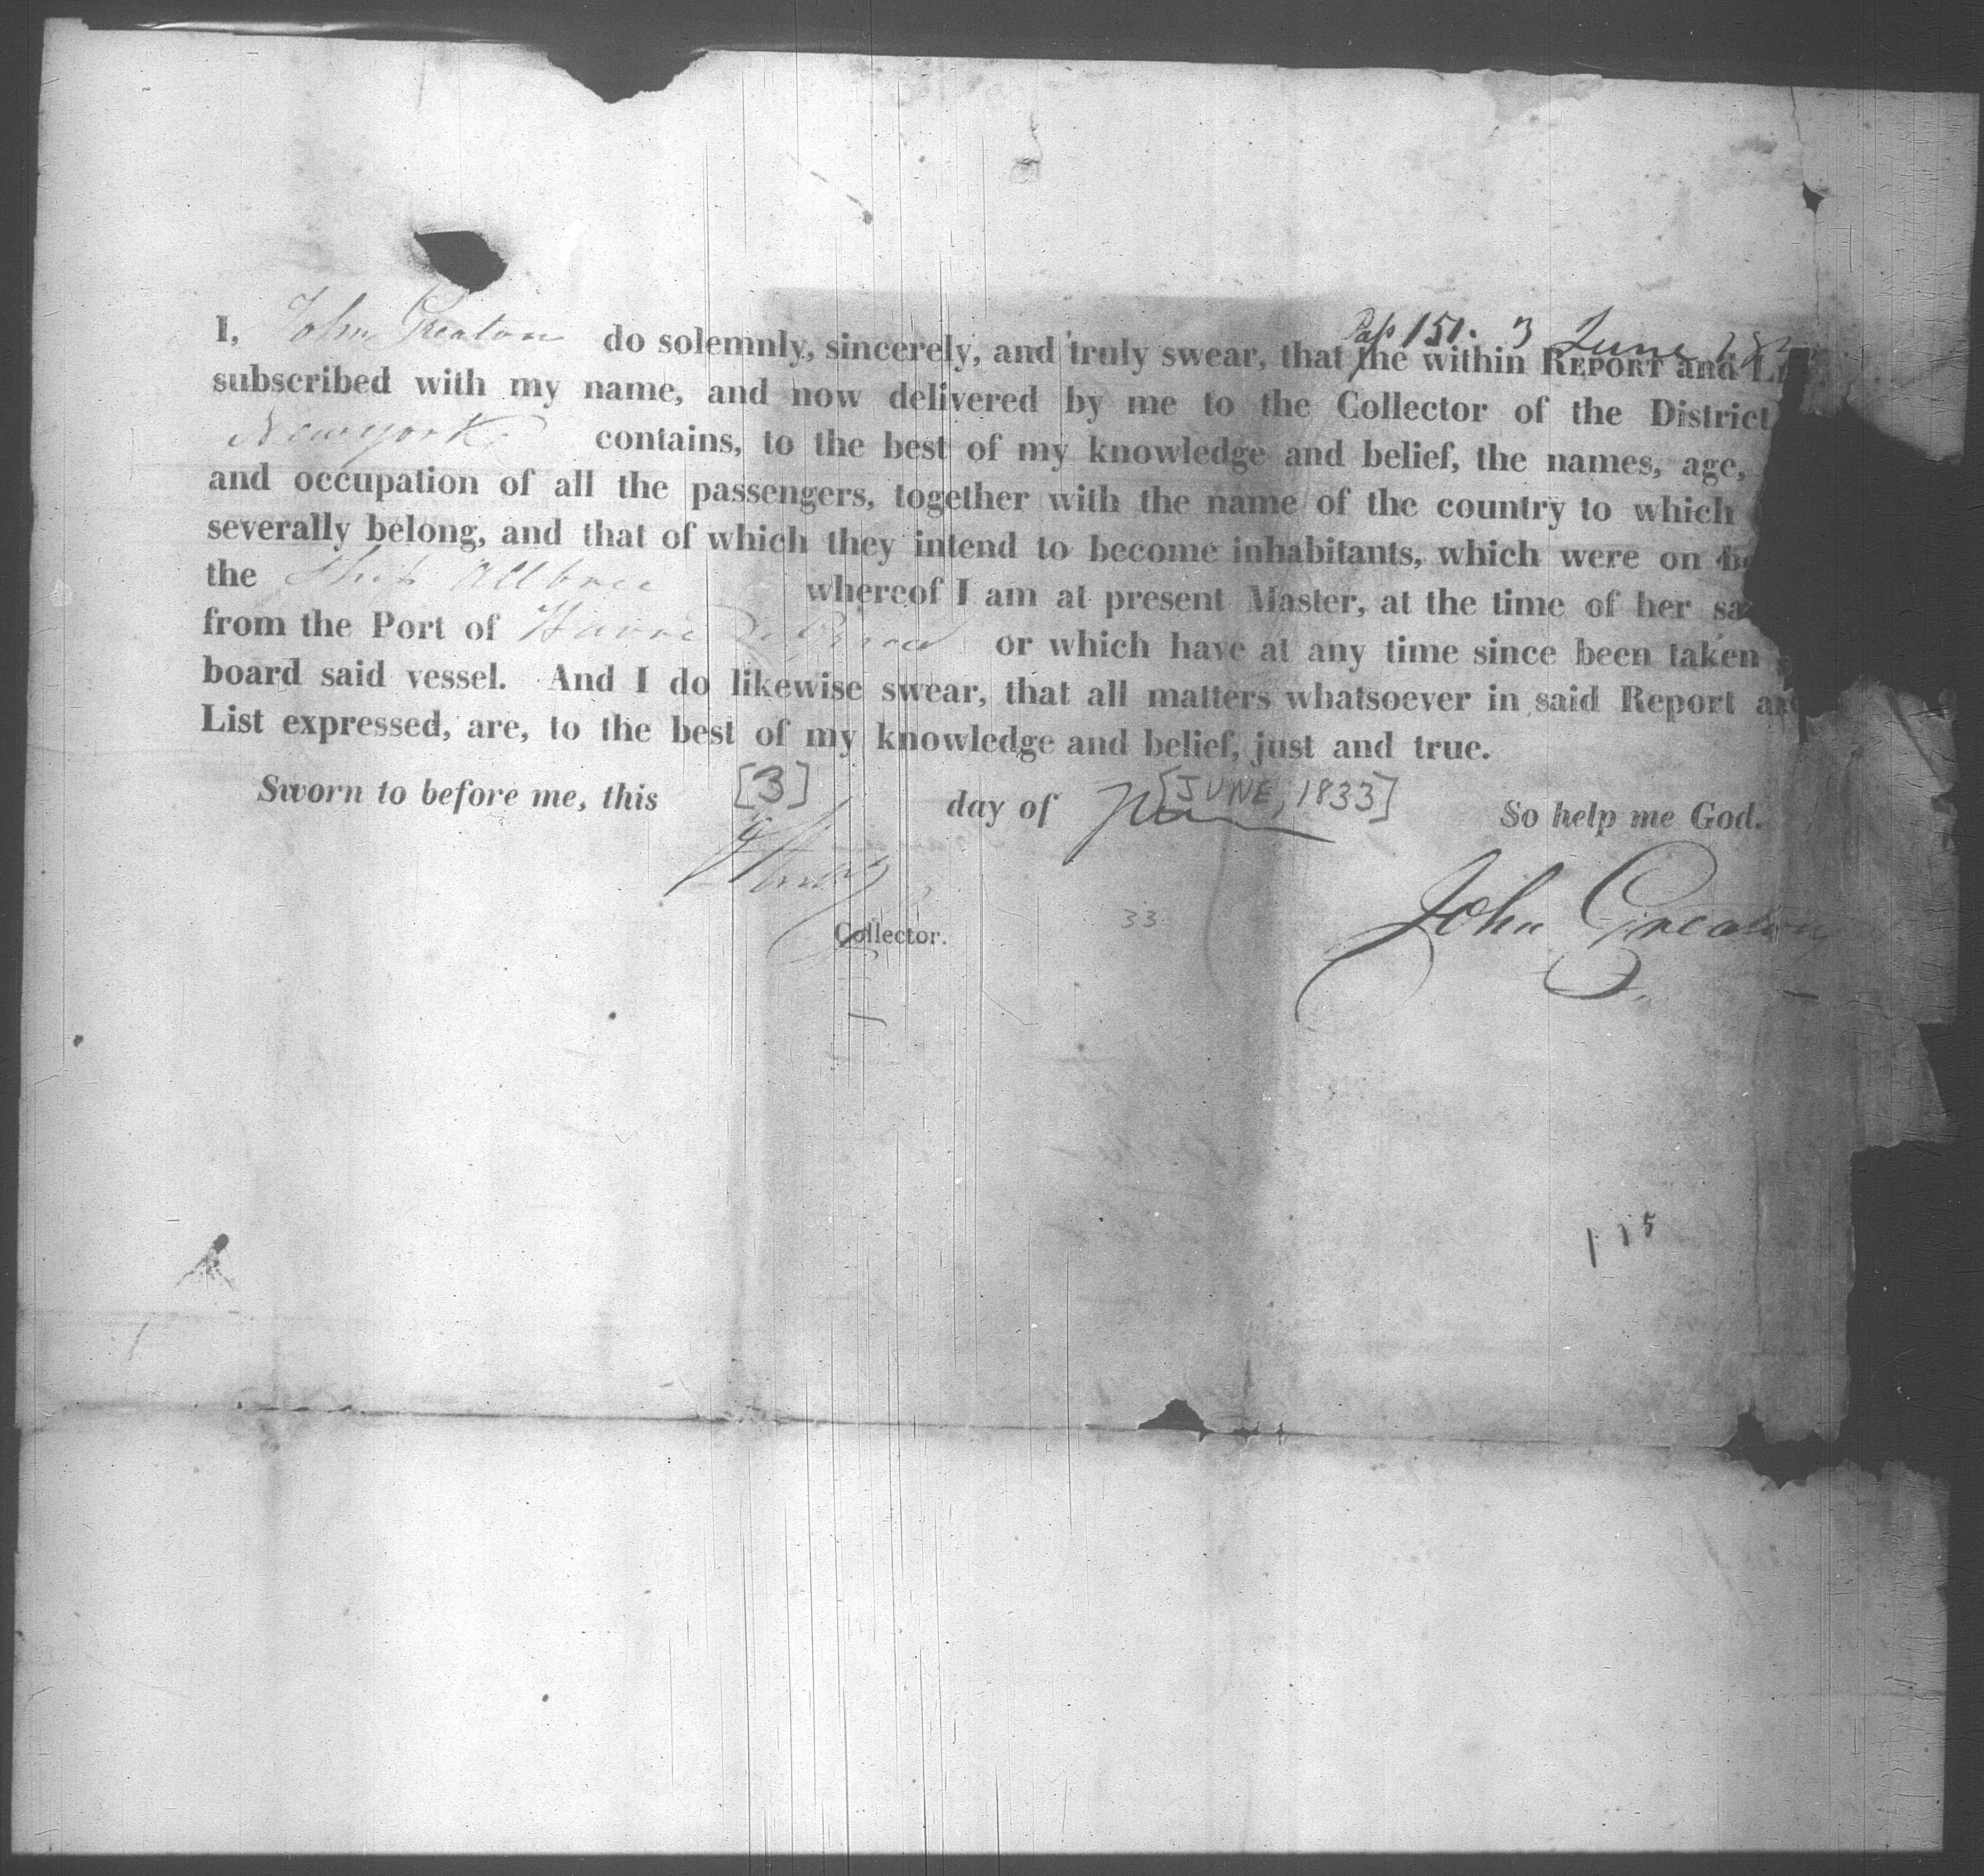 Pass 151. 3 June 183
I, John Greaton do solemnly, sincerely, and truly swear, that the within REPORT and Li
subscribed with my name, and now delivered by me to the Collector of the District
New york contains, to the best of my knowledge and belief, the names, age,
and occupation of all the passengers, together with the name of the country to which
severally belong, and that of which they intend to become inhabitants, which were on b
the Ship whereof I am at present Master, at the time of her sa
from the Port of Havre de Grace or which have at any time since been taken
board said vessel. And I do likewise swear, that all matters whatsoever in said Report an
List expressed, are, to the best of my knowledge and belief, just and true.
Sworn to before me, this [3] day of [JUNE, 1833] So help me God.
Collector. 33 John Greaton
115